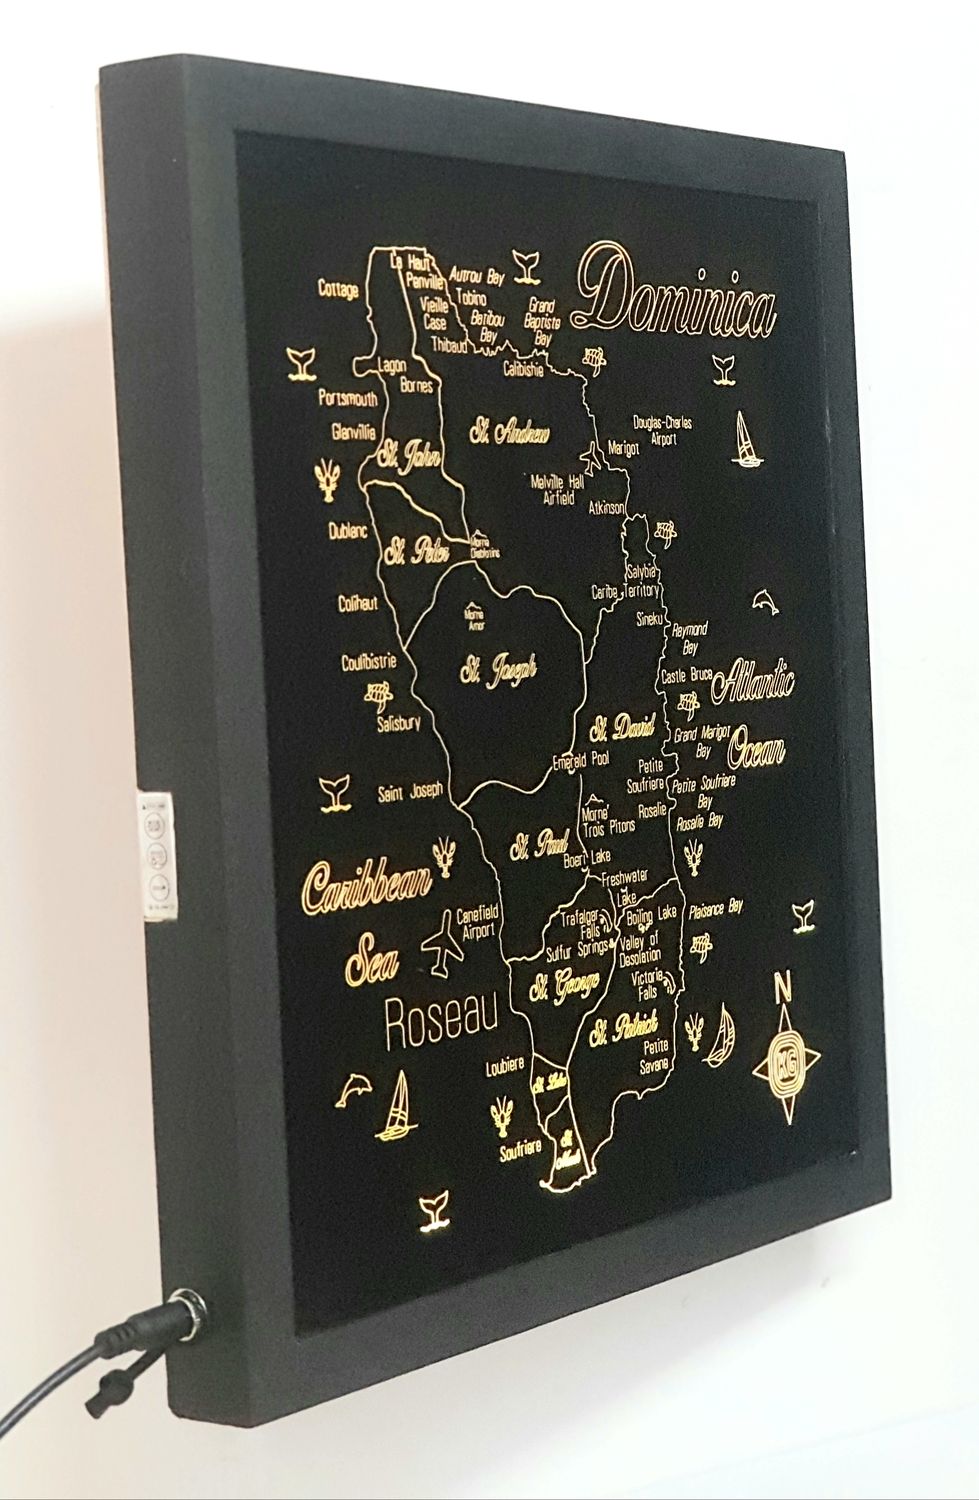 Dominica
La Haut
Penville
Autrou Bay
Cottage
Vieille
Case
Tobino
Batibou
Bay
Grand
Baptiste
Bay
Thibaud
Calibishie
Lagon
Bornes
Portsmouth
Glanvillia
St. John
St. Andrew
Douglas-Charles
Airport
Marigot
Melville Hall
Airfield
Atkinson
Dublanc
St. Peter
Morne
Diablotins
Salybia
Caribe Territory
Colihaut
Morne
Sineku
Raymond
Bay
Coulibistrie
St. Joseph
Castle Bruce
Atlantic
Ocean
Salisbury
St. David
Grand Marigot
Bay
Emerald Pool
Petite
Soufriere
Petite Soufriere
Bay
Saint Joseph
Morne
Trois Pitons
Rosalie
Rosalie Bay
St. Paul
Boeri Lake
Caribbean
Sea
Freshwater
Lake
Canefield
Airport
Trafalger
Falls
Boiling Lake
Plaisance Bay
Sulfur Springs
Valley of
Desolation
St. George
Victoria
Falls
Roseau
St. Patrick
Petite
Savane
N
KG
Loubiere
St. Luke
Soufriere
St.
Mark